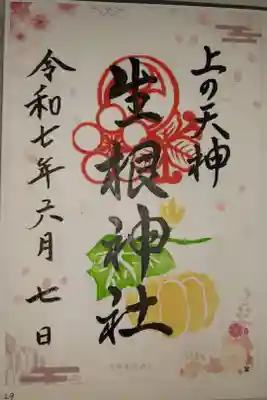 上の天神
生根神社
令和七年六月七日